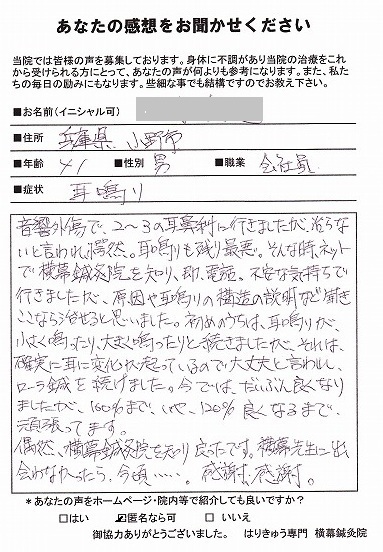 あなたの感想をお聞かせください
当院では皆様の声を募集しております。身体に不調があり当院の治療をこれ
から受けられる方にとって、あなたの声が何よりも参考になります。また、私た
ちの毎日の励みにもなります。些細な事でも結構ですのでお教え下さい。
■お名前(イニシャル可)
■住所 兵庫県 小野市
■年齢 41 ■性別 男 ■職業 会社員
■症状 耳鳴り
音響外傷で、2〜3の耳鼻科に行きましたが、治らな
いと言われ愕然。耳鳴りも残り最悪。そんな時、ネット
で横幕鍼灸院を知り、即、電話。不安な気持ちで
行きましたが、原因や耳鳴りの構造の説明など聞き
ここなら治せると思いました。初めのうちは、耳鳴りが、
小さく鳴ったり、大きく鳴ったりと続きましたが、それは、
確実に耳に変化が起っているので大丈夫と言われ、
ローラ鍼を続けました。今では、だいぶん良くなり
ましたが、100%まで、いや、120%良くなるまで、
頑張ってます。
偶然、横幕鍼灸院を知り良ったです。横幕先生に出
会わなかったら、今頃‥‥‥。感謝、感謝。
*あなたの声をホームページ・院内等で紹介しても良いですか?
□はい ☑匿名なら可 □いいえ
御協力ありがとうございました。 はりきゅう専門 横幕鍼灸院